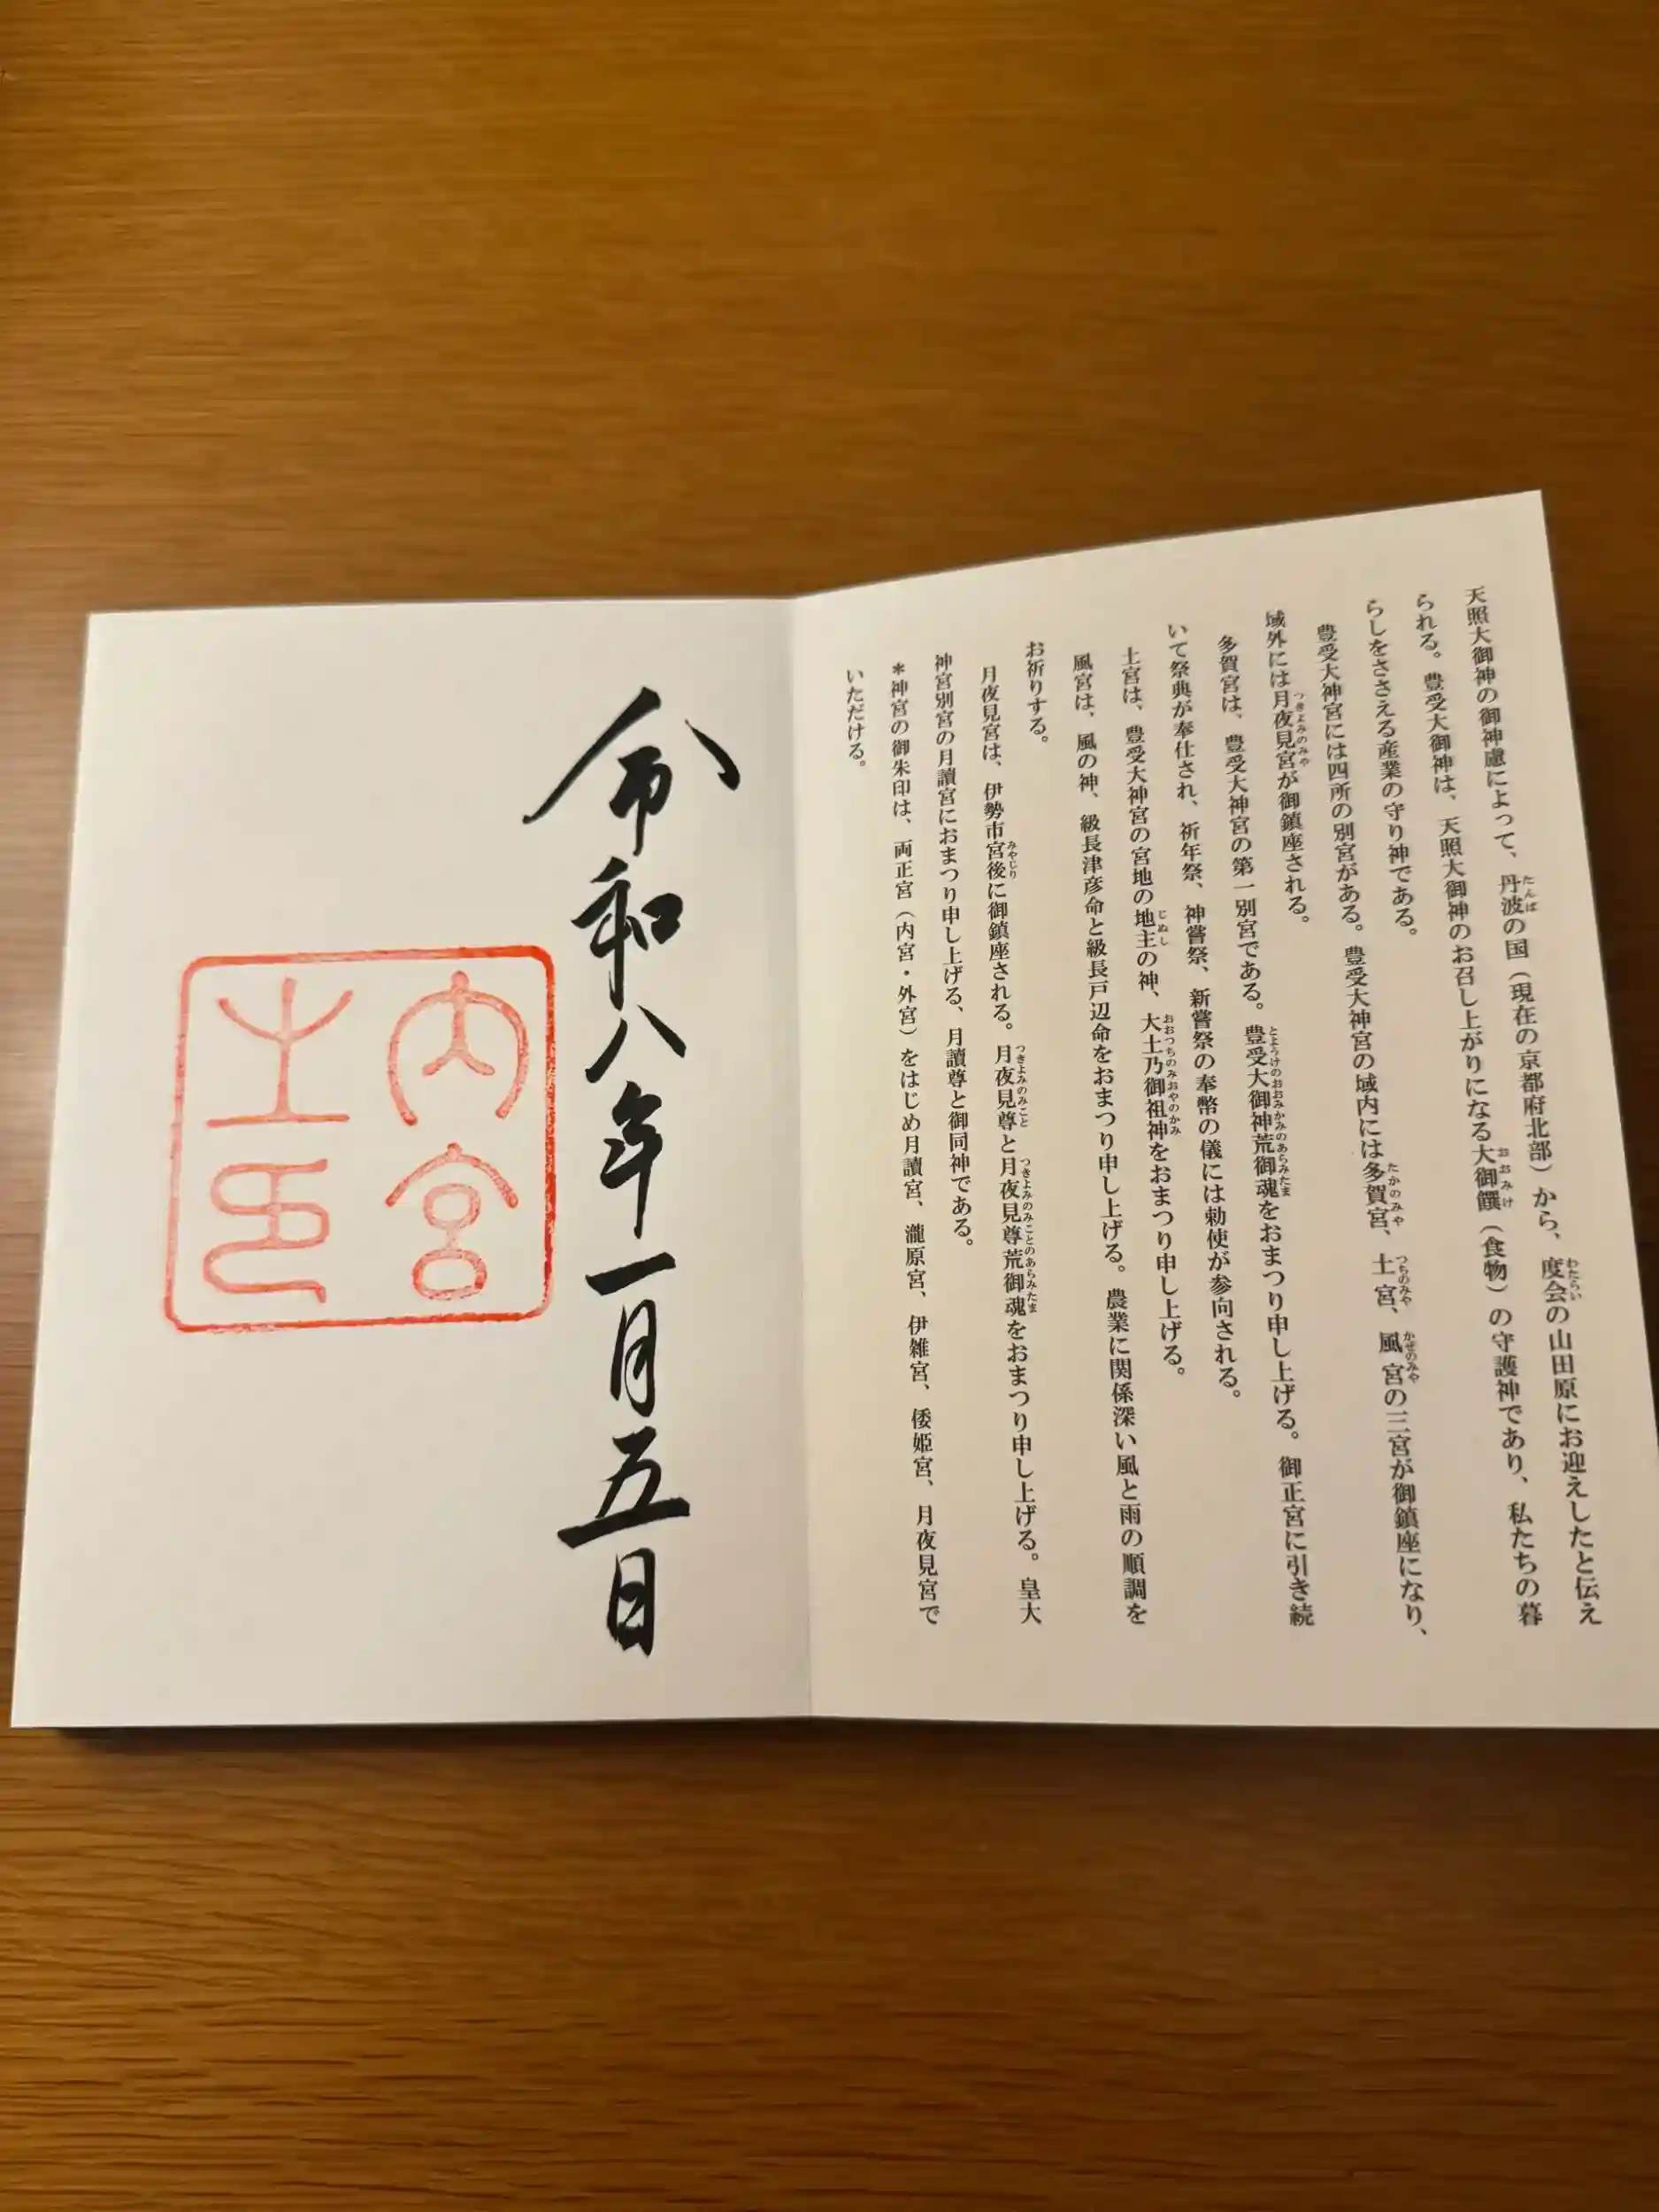 天照大御神の御神慮によって、丹波の国（現在の京都府北部）から、度会の山田原にお迎えしたと伝え
られる。豊受大御神は、天照大御神のお召し上がりになる大御饌（食物）の守護神であり、私たちの暮
らしをささえる産業の守り神である。
豊受大神宮には四所の別宮がある。豊受大神宮の域内には多賀宮、土宮、風宮の三宮が御鎮座になり、
域外には月夜見宮が御鎮座される。
多賀宮は、豊受大神宮の第一別宮である。豊受大御神荒御魂をおまつり申し上げる。御正宮に引き続
いて祭典が奉仕され、祈年祭、神嘗祭、新嘗祭の奉幣の儀には勅使が参向される。
土宮は、豊受大神宮の宮地の地主の神、大土乃御祖神をおまつり申し上げる。
風宮は、風の神、級長津彦命と級長戸辺命をおまつり申し上げる。農業に関係深い風と雨の順調を
お祈りする。
月夜見宮は、伊勢市宮後に御鎮座される。月夜見尊と月夜見尊荒御魂をおまつり申し上げる。皇大
神宮別宮の月讀宮におまつり申し上げる、月讀尊と御同神である。
＊神宮の御朱印は、両正宮（内宮・外宮）をはじめ月讀宮、瀧原宮、伊雑宮、倭姫宮、月夜見宮で
いただける。
令和八年一月五日
内宮
之印